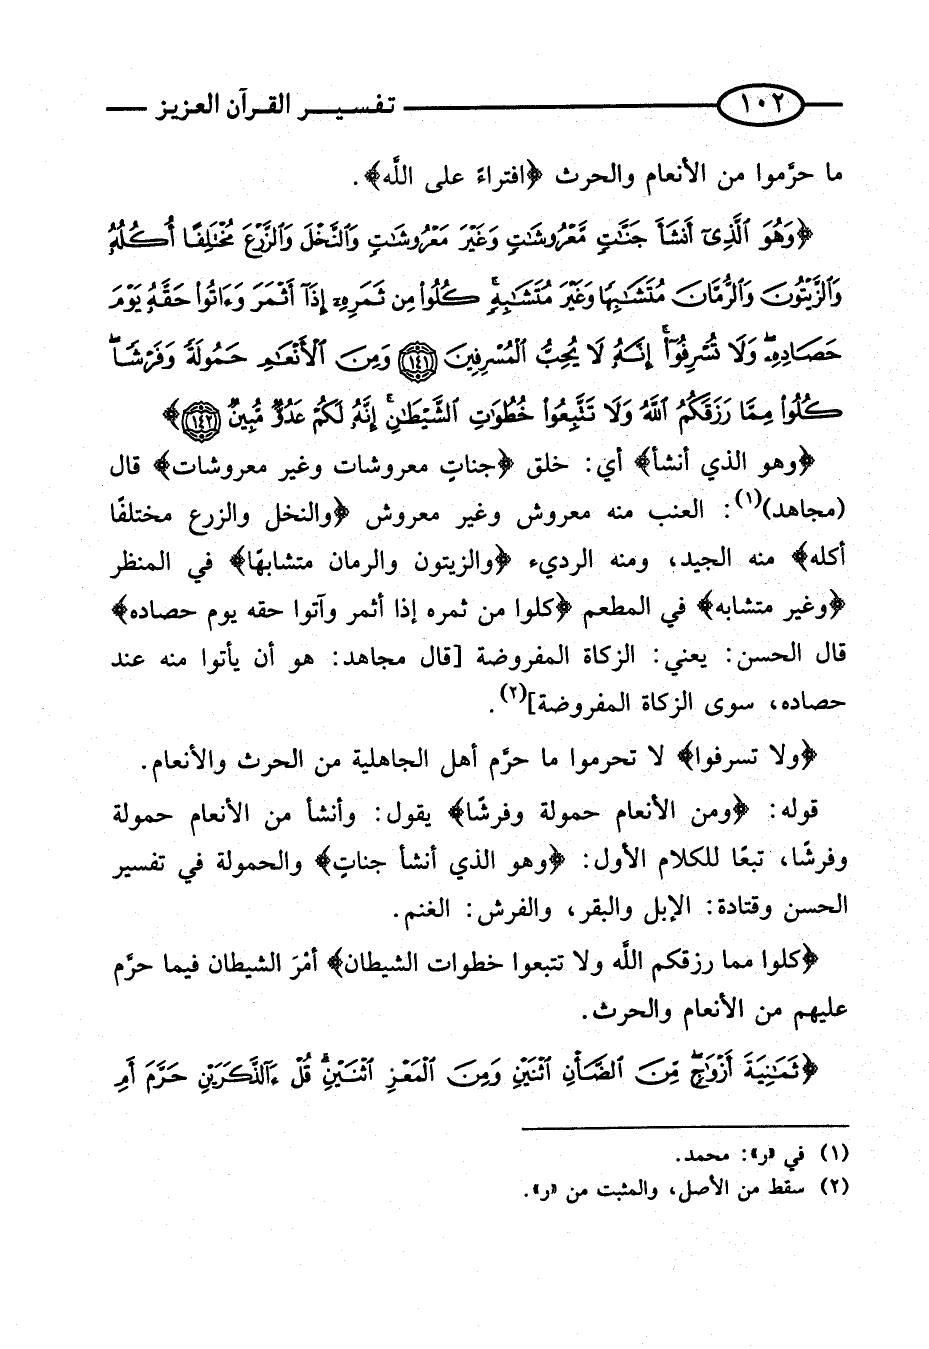 ١٠٢ تفسير القرآن العزيز
ما حرَّموا من الأنعام والحرث ﴿افتراءً على اللَّه﴾.
﴿وَهُوَ ٱلَّذِىٓ أَنشَأَ جَنَّٰتٍ مَّعْرُوشَٰتٍ وَغَيْرَ مَعْرُوشَٰتٍ وَٱلنَّخْلَ وَٱلزَّرْعَ مُخْتَلِفًا أُكُلُهُۥ
وَٱلزَّيْتُونَ وَٱلرُّمَّانَ مُتَشَٰبِهًا وَغَيْرَ مُتَشَٰبِهٍۚ كُلُوا۟ مِن ثَمَرِهِۦٓ إِذَآ أَثْمَرَ وَءَاتُوا۟ حَقَّهُۥ يَوْمَ
حَصَادِهِۦۖ وَلَا تُسْرِفُوٓا۟ۚ إِنَّهُۥ لَا يُحِبُّ ٱلْمُسْرِفِينَ ﴿١٤١﴾ وَمِنَ ٱلْأَنْعَٰمِ حَمُولَةً وَفَرْشًاۖ
كُلُوا۟ مِمَّا رَزَقَكُمُ ٱللَّهُ وَلَا تَتَّبِعُوا۟ خُطُوَٰتِ ٱلشَّيْطَٰنِۚ إِنَّهُۥ لَكُمْ عَدُوٌّ مُّبِينٌ ﴿١٤٢﴾﴾
﴿وهو الذي أنشأ﴾ أي: خلق ﴿جناتٍ معروشات وغير معروشات﴾ قال
(مجاهد)(١): العنب منه معروش وغير معروش ﴿والنخل والزرع مختلفًا
أكله﴾ منه الجيد، ومنه الرديء ﴿والزيتون والرمان متشابهًا﴾ في المنظر
﴿وغير متشابه﴾ في المطعم ﴿كلوا من ثمره إذا أثمر وآتوا حقه يوم حصاده﴾
قال الحسن: يعني: الزكاة المفروضة [قال مجاهد: هو أن يأتوا منه عند
حصاده، سوى الزكاة المفروضة](٢).
﴿ولا تسرفوا﴾ لا تحرموا ما حرَّم أهل الجاهلية من الحرث والأنعام.
قوله: ﴿ومن الأنعام حمولة وفرشًا﴾ يقول: وأنشأ من الأنعام حمولة
وفرشًا، تبعًا للكلام الأول: ﴿وهو الذي أنشأ جناتٍ﴾ والحمولة في تفسير
الحسن وقتادة: الإبل والبقر، والفرش: الغنم.
﴿كلوا مما رزقكم اللَّه ولا تتبعوا خطوات الشيطان﴾ أمْرَ الشيطان فيما حرَّم
عليهم من الأنعام والحرث.
﴿ثَمَٰنِيَةَ أَزْوَٰجٍۖ مِّنَ ٱلضَّأْنِ ٱثْنَيْنِ وَمِنَ ٱلْمَعْزِ ٱثْنَيْنِۗ قُلْ ءَآلذَّكَرَيْنِ حَرَّمَ أَمِ
(١) في «ر»: محمد.
(٢) سقط من الأصل، والمثبت من «ر».